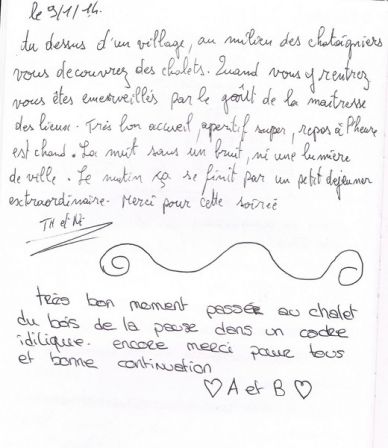 le 9/1/14.
Au dessus d'un village, au milieu des chataigniers
vous decouvrez des chalets. Quand vous y rentrez
vous êtes emerveillés par le goût de la maitresse
des lieux. Très bon accueil, aperitif super, repas à l'heure
est chaud. La nuit sans un bruit, ni une lumière
de ville. Le matin ça se finit par un petit dejeuner
extraordinaire. Merci pour cette soirée
très bon moment passée au chalet
du bois de la pause dans un cadre
idilique. encore merci pour tous
et bonne continuation
♡ A et B ♡